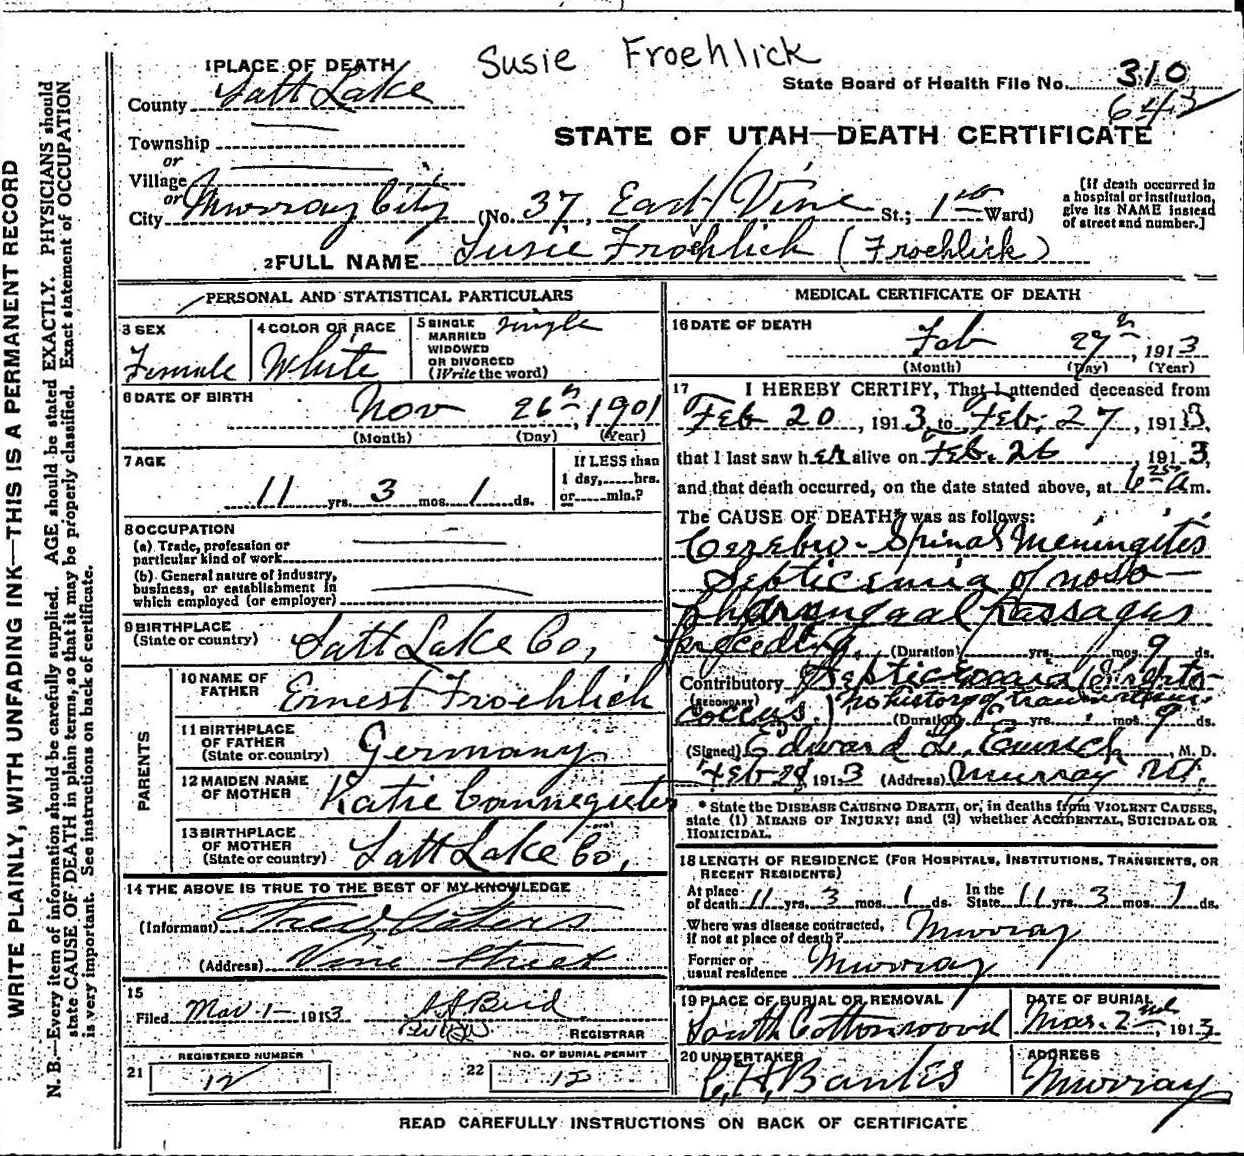 Susie Froehlick
1 PLACE OF DEATH
State Board of Health File No. 310
County Salt Lake
643
Township
STATE OF UTAH—DEATH CERTIFICATE
or
Village
or
City Murray City (No. 37, East Vine St.; 1st Ward)
[If death occurred in a hospital or institution, give its NAME instead of street and number.]
2 FULL NAME Susie Froehlick (Froehlick)
PERSONAL AND STATISTICAL PARTICULARS
3 SEX Female
4 COLOR OR RACE White
5 SINGLE MARRIED WIDOWED OR DIVORCED (Write the word) single
6 DATE OF BIRTH Nov 26th, 1901
(Month) (Day) (Year)
7 AGE 11 yrs. 3 mos. 1 ds.
If LESS than 1 day, hrs. or min.?
8 OCCUPATION
(a) Trade, profession or particular kind of work
(b) General nature of industry, business, or establishment in which employed (or employer)
9 BIRTHPLACE (State or country) Salt Lake Co,
PARENTS
10 NAME OF FATHER Ernest Froehlich
11 BIRTHPLACE OF FATHER (State or country) Germany
12 MAIDEN NAME OF MOTHER Katie
13 BIRTHPLACE OF MOTHER (State or country) Salt Lake Co,
14 THE ABOVE IS TRUE TO THE BEST OF MY KNOWLEDGE
(Informant) Fred
(Address) Vine Street
15
Filed Mar 1- 1913
REGISTRAR
REGISTERED NUMBER
21 12
NO. OF BURIAL PERMIT
22 12
MEDICAL CERTIFICATE OF DEATH
16 DATE OF DEATH
Feb 27th, 1913
(Month) (Day) (Year)
17 I HEREBY CERTIFY, That I attended deceased from
Feb 20, 1913, to Feb. 27, 1913,
that I last saw her alive on Feb. 26, 1913,
and that death occurred, on the date stated above, at 6 25 A m.
The CAUSE OF DEATH* was as follows:
Cerebro-Spinal Meningites
Septicemia of naso-
pharyngeal passages
preceding. (Duration) yrs. mos. 9 ds.
Contributory Septicemia (Strepto-
(SECONDARY) coccus.) no history of
(Duration) yrs. mos. 9 ds.
(Signed) Edward D. Emrich, M. D.
Feb 28 1913 (Address) Murray Ut.
* State the DISEASE CAUSING DEATH, or, in deaths from VIOLENT CAUSES,
state (1) MEANS OF INJURY; and (2) whether ACCIDENTAL, SUICIDAL OR
HOMICIDAL.
18 LENGTH OF RESIDENCE (FOR HOSPITALS, INSTITUTIONS, TRANSIENTS, OR
RECENT RESIDENTS)
At place of death 11 yrs. 3 mos. 1 ds. In the State 11 yrs. 3 mos. 1 ds.
Where was disease contracted, if not at place of death? Murray
Former or usual residence Murray
19 PLACE OF BURIAL OR REMOVAL South Cottonwood
DATE OF BURIAL Mar. 2nd, 1913
20 UNDERTAKER C. H. Banks
ADDRESS Murray
READ CAREFULLY INSTRUCTIONS ON BACK OF CERTIFICATE
WRITE PLAINLY, WITH UNFADING INK—THIS IS A PERMANENT RECORD
N. B.—Every item of information should be carefully supplied. AGE should be stated EXACTLY. PHYSICIANS should
state CAUSE OF DEATH in plain terms, so that it may be properly classified. Exact statement of OCCUPATION
is very important. See instructions on back of certificate.